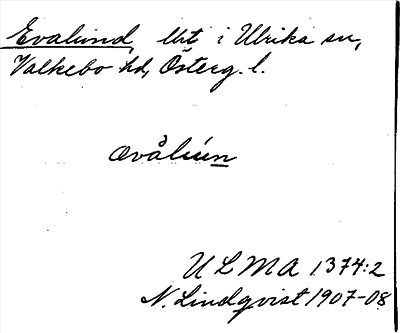 Evalund, Urt i Ulrika sn,
Valkebo hd, Österg. l.
ævålún
ULMA 1374:2
N. Lindqvist 1907-08